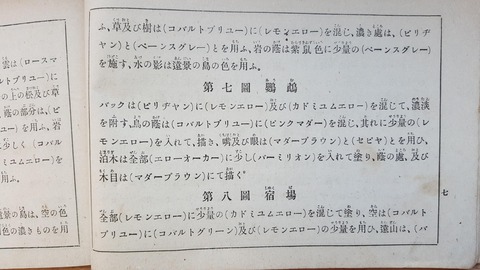 ふ、草及び樹は(コバルトブリユー)に(レモンエロー)を混じ、濃き處は、(ビリヂ
ヤン)と(ペーンスグレー)とを用ふ、岩の蔭は紫鼠色に少量の(ペーンスグレー)
を施す、水の影は遠景の島の色を用ふ。
第七圖 鸚鵡
バックは(ビリヂヤン)に(レモンエロー)及び(カドミユムエロー)を混じて、濃淡
を附す、鳥の蔭は(コバルトブリユー)に(ピンクマダー)を混じ、其れに少量の(レ
モンエロー)を入れて、描き、嘴及び眼は(マダーブラウン)と(セピヤ)とを用ひ、
泊木は全部(エローオーカー)に少し(バーミリオン)を入れて塗り、蔭の處、及び
木目は(マダーブラウン)にて描く。
第八圖 宿場
全部(レモンエロー)に少量の(カドミユムエロー)を混じて塗り、空は(コバルト
ブリユー)に(コバルトグリーン)及び(レモンエロー)の少量を用ひ、遠山は、(バ
七
雲は(ロースマ
ルトブリユー)
の上の松及び草
蔭の部分は、(ビ
)を用ふ、岩
少しく(コバル
カドミユムエロ
用ふ。
遠景の島は、空の色
色の濃きものを用